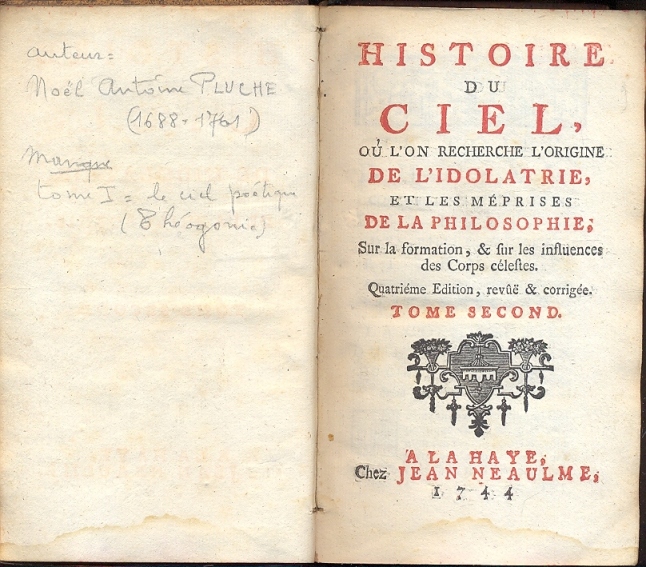 auteur =
Noël Antoine PLUCHE
(1688-1761)
Manque
tome I = le ciel poétique
(Théogonie)
HISTOIRE
DU
CIEL,
OÙ L'ON RECHERCHE L'ORIGINE
DE L'IDOLATRIE,
ET LES MÉPRISES
DE LA PHILOSOPHIE,
Sur la formation, & ſur les influences
des Corps céleſtes.
Quatriéme Edition, revûë & corrigée.
TOME SECOND.
A LA HAYE,
Chez JEAN NEAULME,
1744